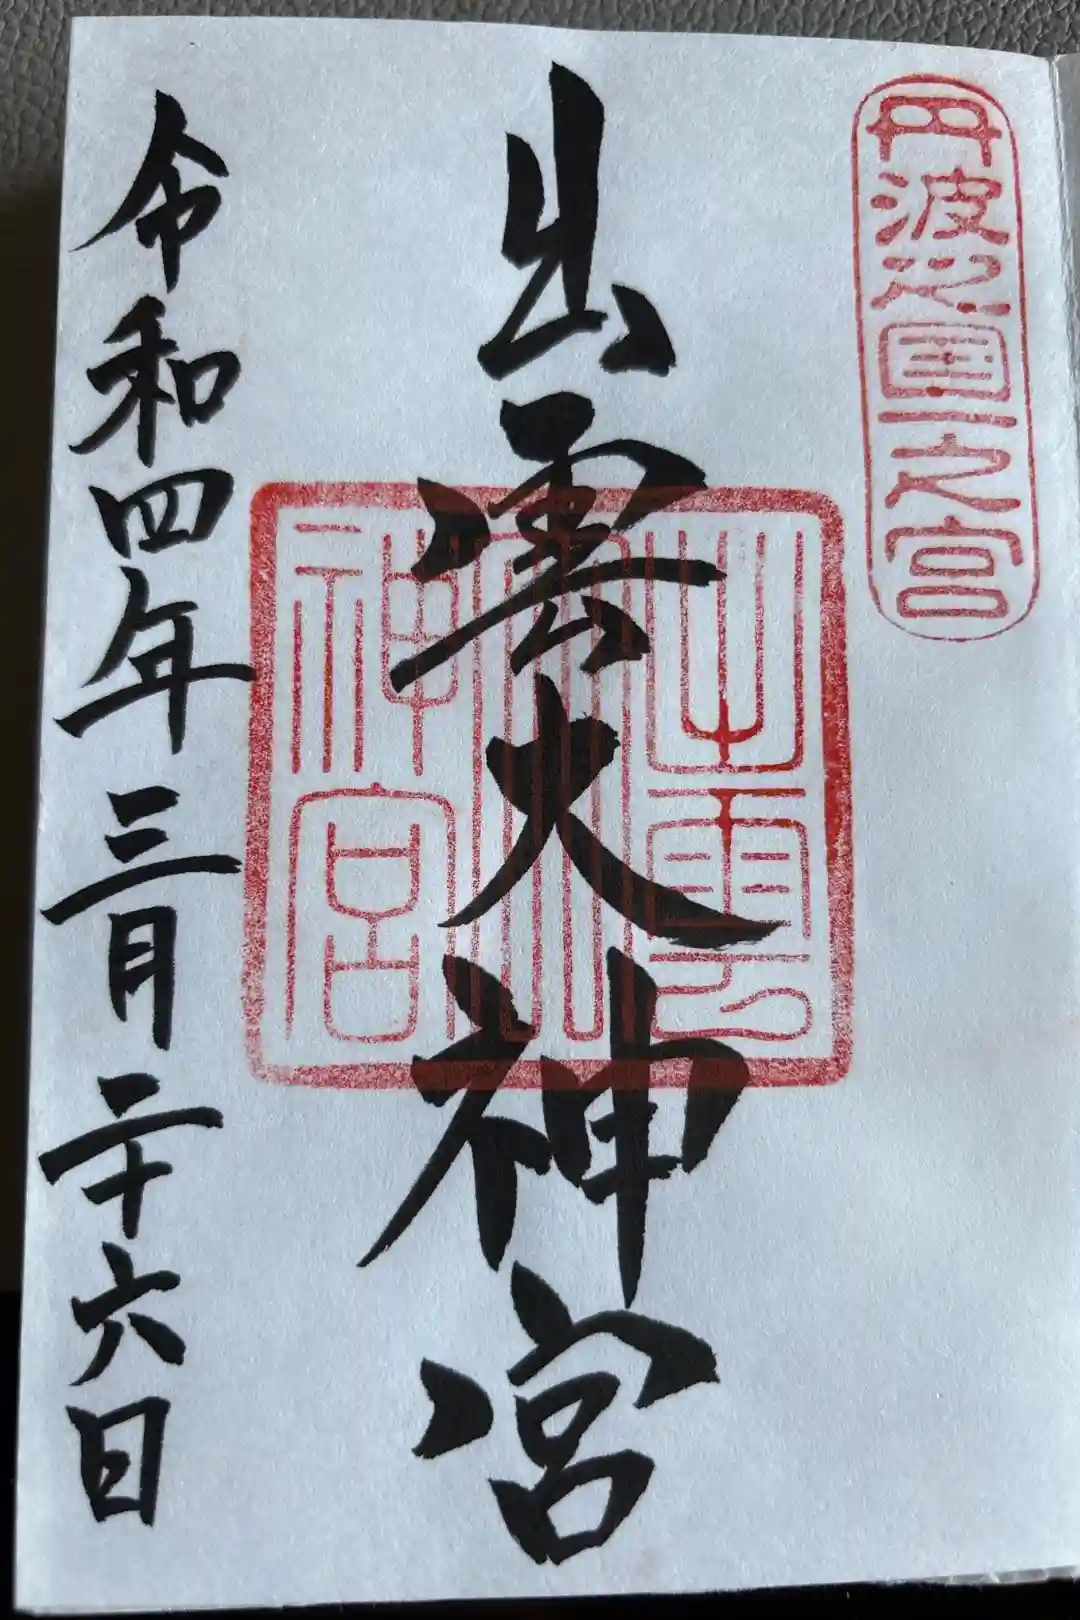 丹波之国一之宮
出雲大神宮
出雲大神宮
令和四年三月二十六日